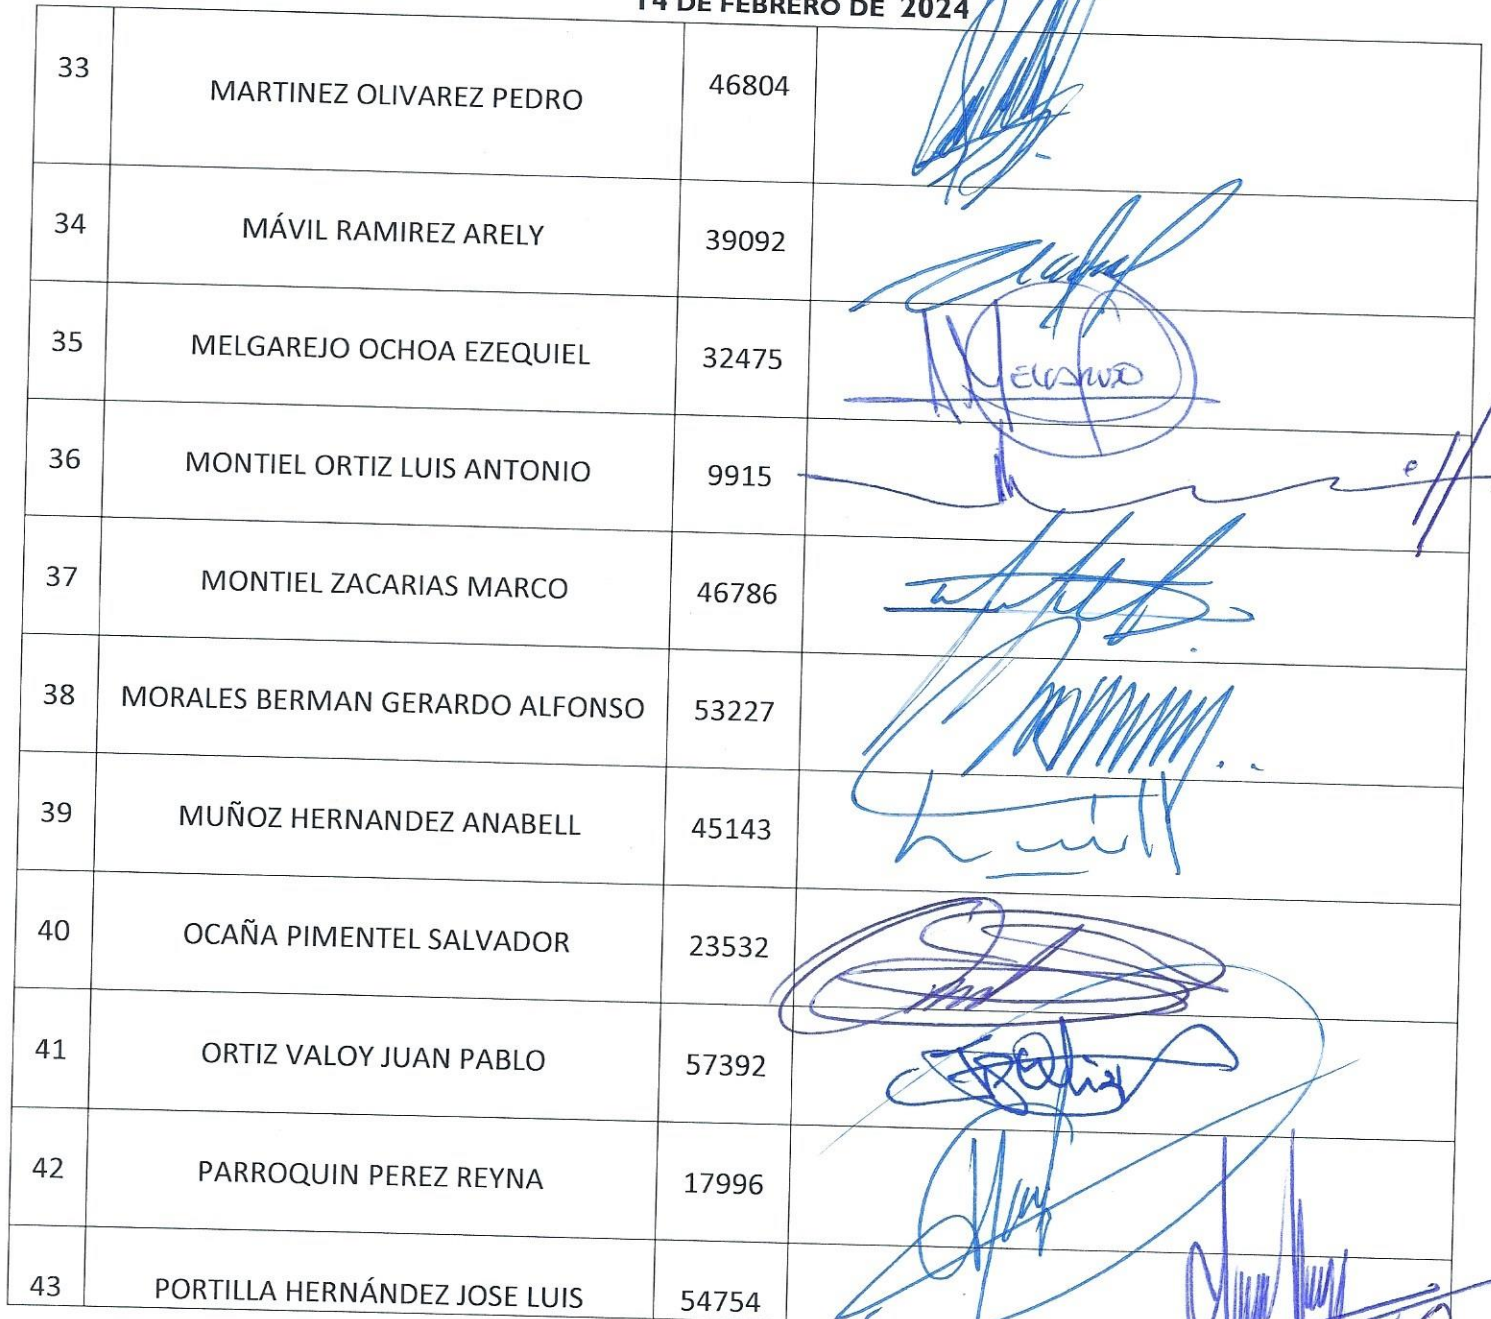 14 DE FEBRERO DE 2024
33 MARTINEZ OLIVAREZ PEDRO 46804
34 MÁVIL RAMIREZ ARELY 39092
35 MELGAREJO OCHOA EZEQUIEL 32475
36 MONTIEL ORTIZ LUIS ANTONIO 9915
37 MONTIEL ZACARIAS MARCO 46786
38 MORALES BERMAN GERARDO ALFONSO 53227
39 MUÑOZ HERNANDEZ ANABELL 45143
40 OCAÑA PIMENTEL SALVADOR 23532
41 ORTIZ VALOY JUAN PABLO 57392
42 PARROQUIN PEREZ REYNA 17996
43 PORTILLA HERNÁNDEZ JOSE LUIS 54754